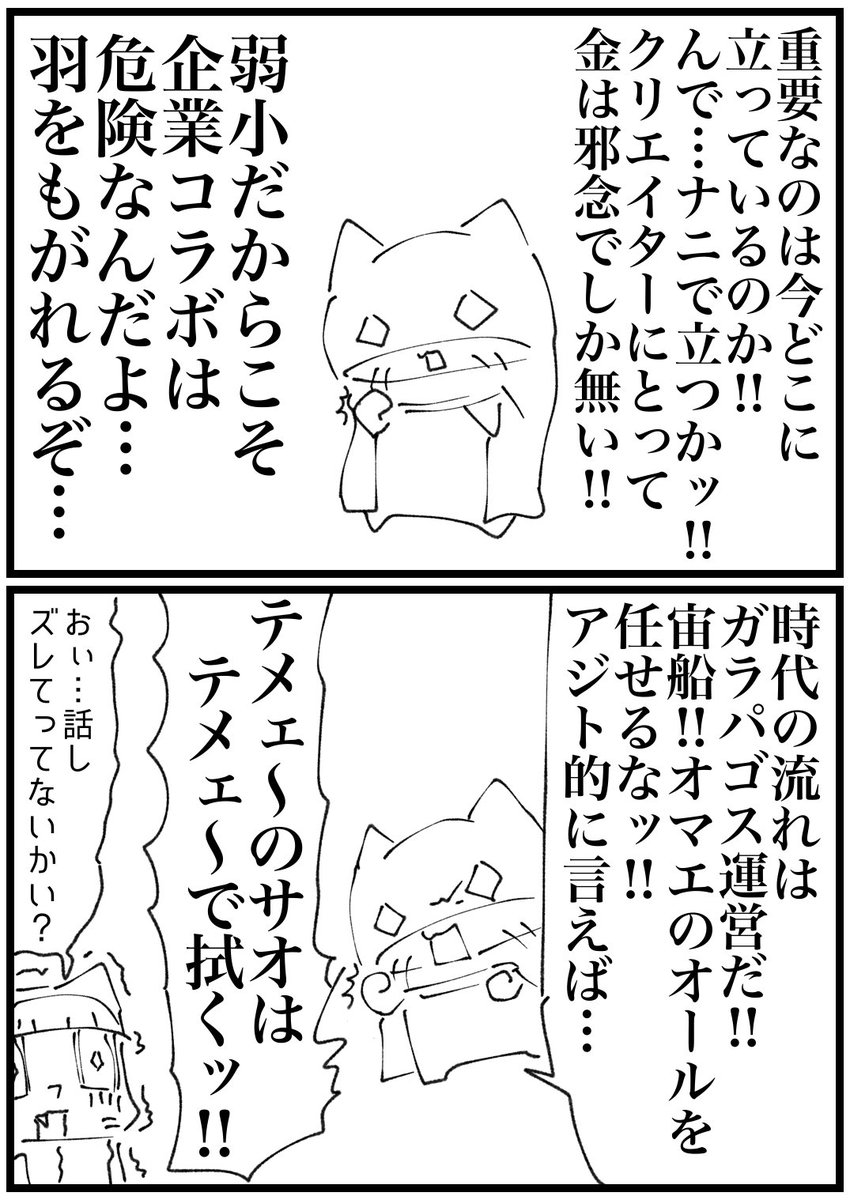 重要なのは今どこに
立っているのか!!
んで…ナニで立つかッ!!
クリエイターにとって
金は邪念でしか無い!!
弱小だからこそ
企業コラボは
危険なんだよ…
羽をもがれるぞ…
時代の流れは
ガラパゴス運営だ!!
宙船!!オマエのオールを
任せるなッ!!
アジト的に言えば…
テメェ～のサオは
テメェ～で拭くッ!!
おぃ…話し
ズレてってないかい?